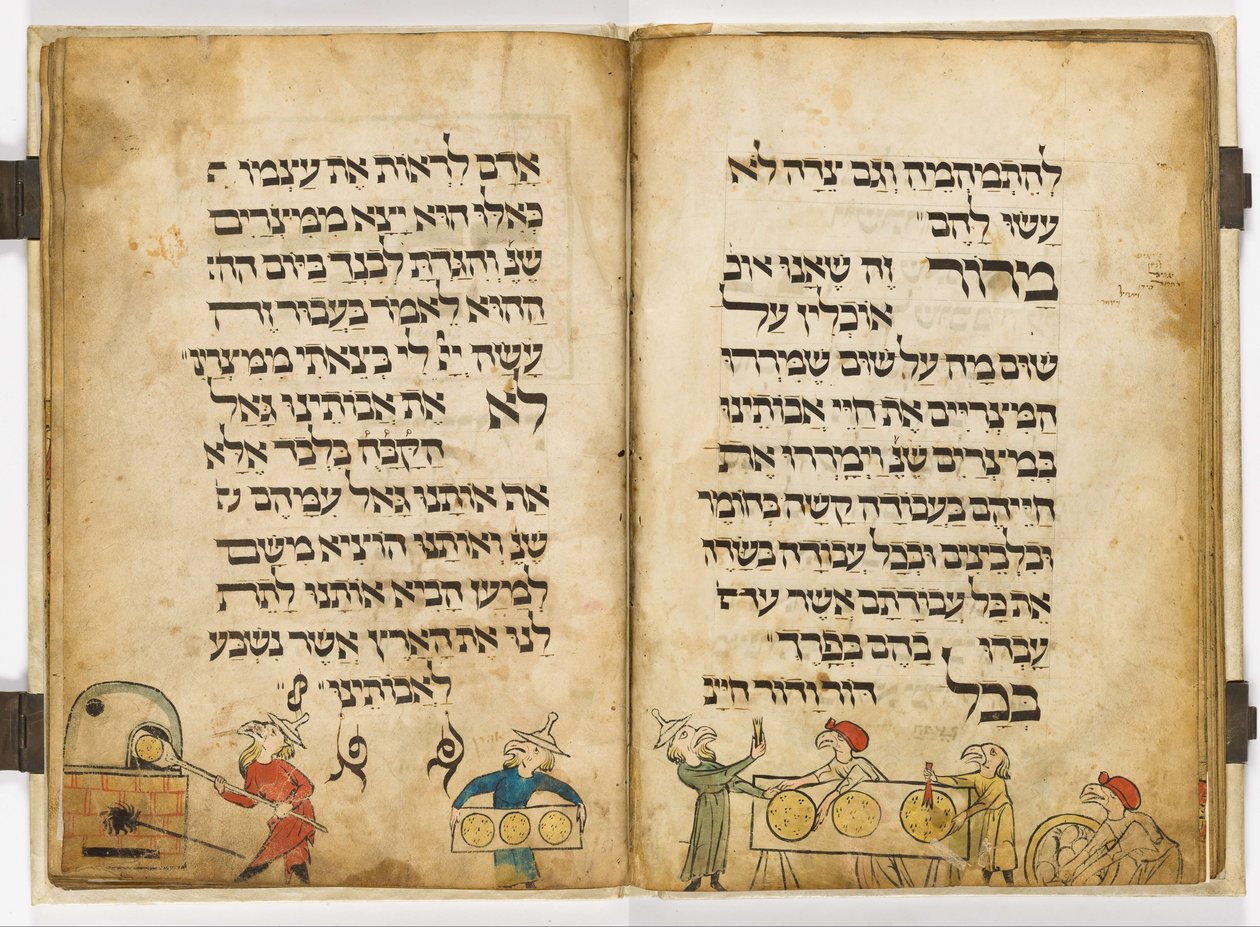 להתמהמה וגם צדה לא
עשו להם״
מרור זה שאנו אוכ
אוכלין על
שום מה על שום שמררו
המיצריים את חיי אבותינו
במיצרים שנ׳ וימררו את
חייהם בעבודה קשה בחומר
ובלבינים ובכל עבודה בשדה
את כל עבודתם אשר
עבדו בהם בפרך״
בכל דור ודור חייב
אדם לראות את עצמו
כאלו הוא יצא ממיצרים
שנ׳ והגדת לבנך ביום הה
ההוא לאמר בעבור זה
עשה ייי לי בצאתי ממיצרי״
לא את אבותינו גאל
הקבה בלבד אלא
את אותנו גאל עמהם
שנ׳ ואותנו הוציא משם
למען הביא אותנו לתת
לנו את הארץ אשר נשבע
לאבותינו״